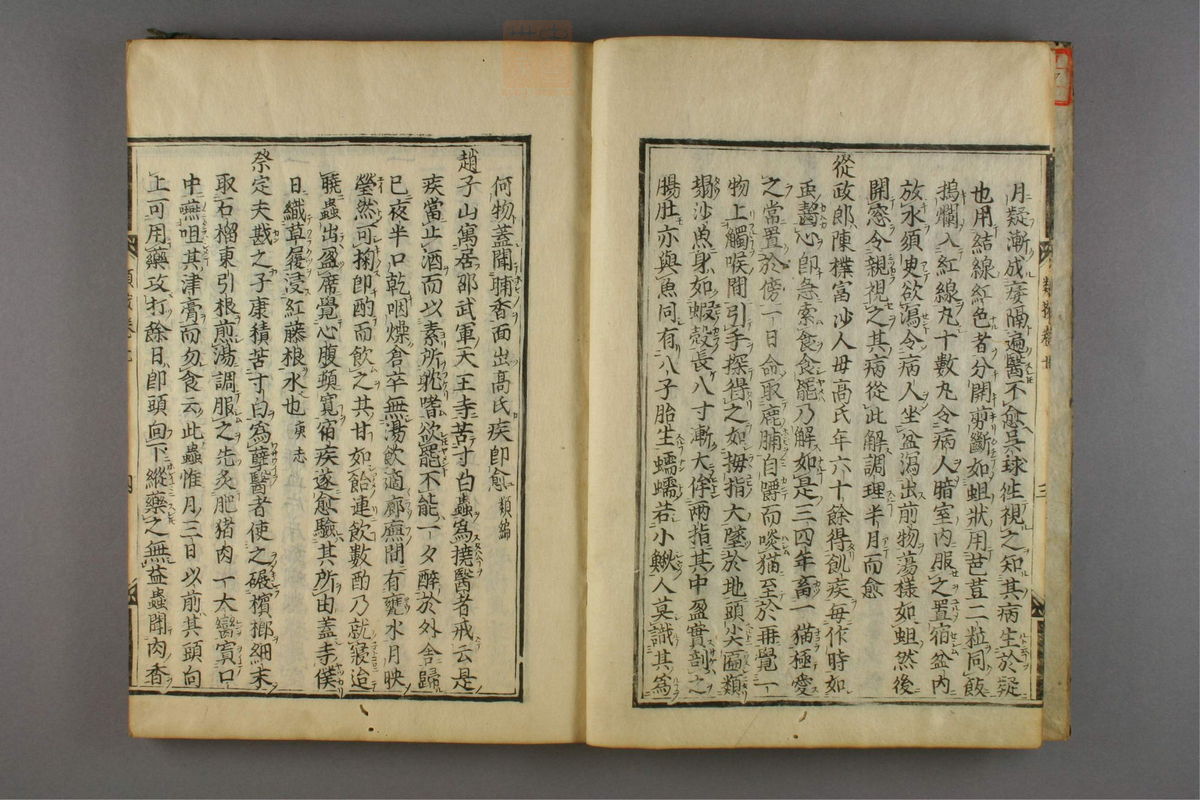 月疑漸成痿隔遍醫不愈吴球徃視之知其病生於疑
也用結線紅色者分開剪斷如蛆狀用芭荳二粒同飯
搗爛入紅線丸十數丸令病人暗室内服之置宿盆内
放水須臾欲瀉令病人坐盆瀉出前物蕩樣如蛆然後
開窓令親視之其病從此解調理半月而愈
從政郎陳樸富沙人母高氏年六十餘得飢疾每作時如
虫齧心即急索食食罷乃解如是三四年畜一猫極愛
之當置於傍一日命取鹿脯自嚼而啖猫至於再覺一
物上觸喉間引手探得之如拇指大墜於地頭尖匾類
塌沙魚身如蝦殼長八寸漸大侔兩指其中盈實剖之
腸肚亦與魚同有八子胎生蠕蠕若小鰍人莫識其爲
何物蓋聞脯香面出高氏疾即愈 類編
趙子山寓居邵武軍天王寺苦寸白蟲爲撓醫者戒云是
疾當止酒而以素所躭嗜欲罷不能一夕醉於外舎歸
已夜半口乾咽燥倉卒無湯飲適廊廡間有甕水月映
瑩然可掬即酌而飲之其甘如飴連飲數酌乃就寢迨
曉蟲出盈席覺心腹頓寛宿疾遂愈驗其所由蓋寺僕
日織草履浸紅藤根水也 庚志
祭定夫戡之子康積苦寸白爲孽醫者使之碾檳榔細末
取石榴東引根煎湯調服之先炙肥猪肉一大臠寘口
中嚥咀其津膏而勿食云此蟲惟月三日以前其頭向
上可用藥攻打餘日即頭向下縱藥之無益蟲聞肉香
類案卷十
四
三